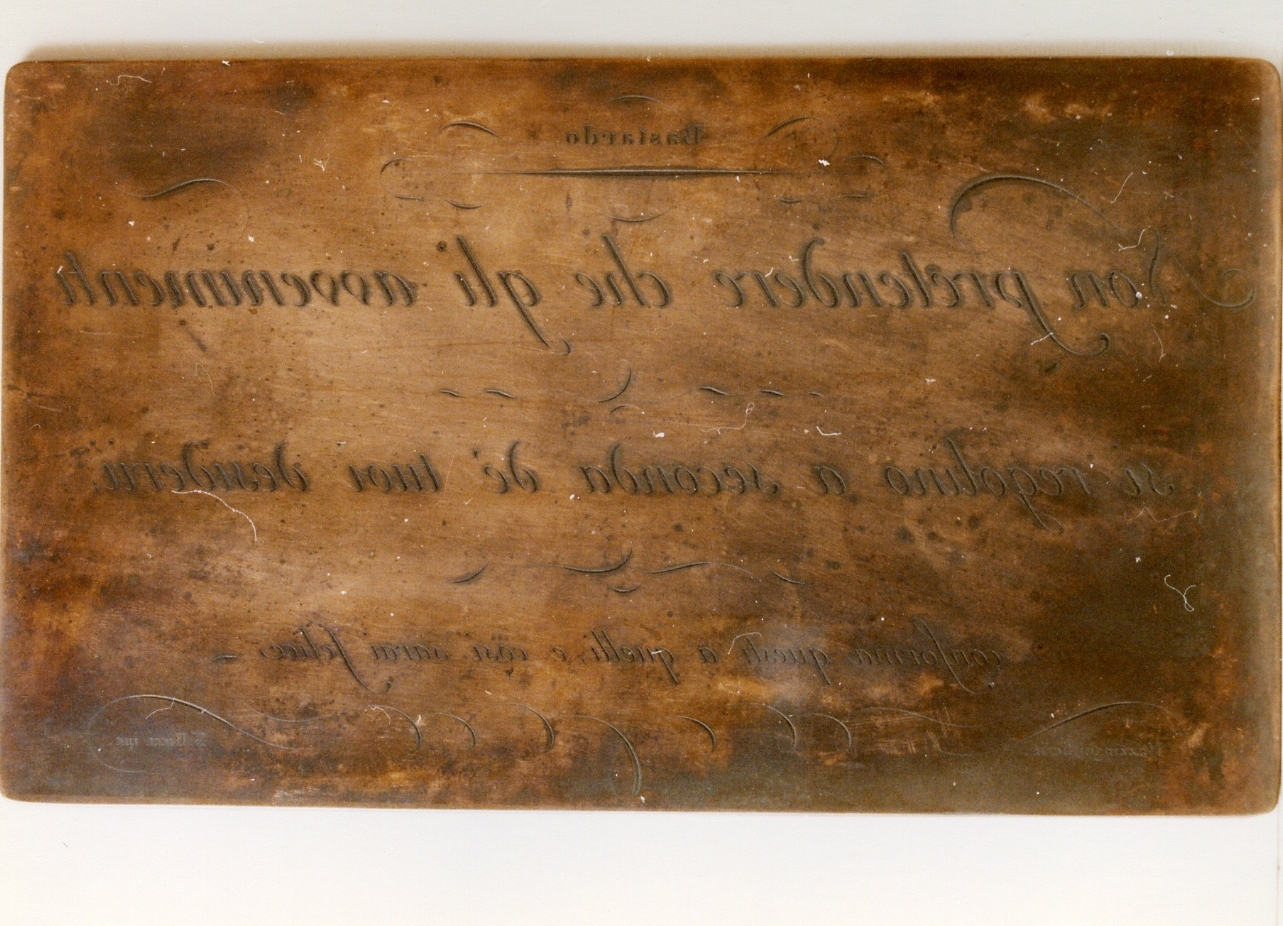 Bastardo
Non pretendere che gli avvenimenti
si regolino a seconda de' tuoi desiderii.
conforma questi a quelli, e così sarai felice.